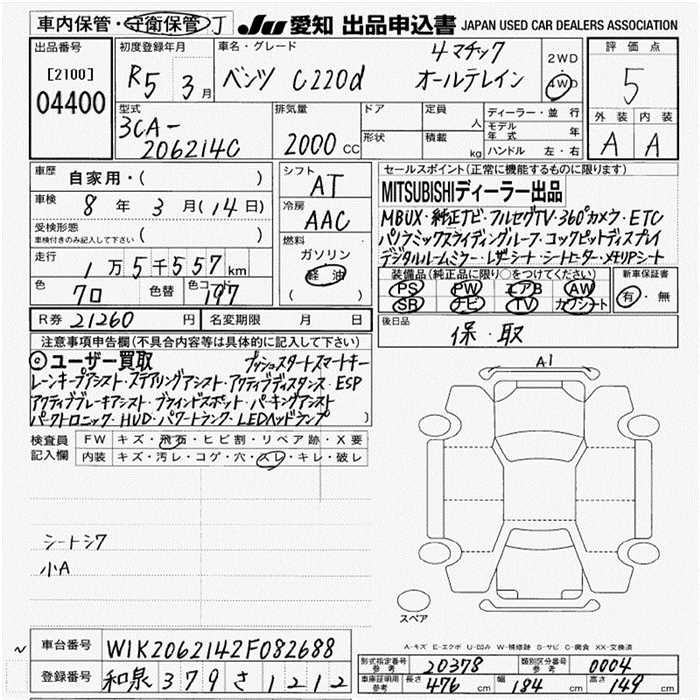 車内保管・守衛保管 丁
JU 愛知 出品申込書 JAPAN USED CAR DEALERS ASSOCIATION
出品番号
[2100]
04400
初度登録年月
R5 3月
車名・グレード
ベンツ C220d
4マチック
オールテレイン
2WD
4WD
評価点
5
外装 内装
A A
型式
3CA-
206214C
排気量
2000 CC
ドア
形状
定員 人
積載 kg
ディーラー・並行
モデル年 年
ハンドル 左・右
車歴 自家用・( )
車検 8年3月(14日)
受検形態
車検付きのみ記入して下さい ( )
走行 1万5千557km
色 クロ 色替 色コード 197
シフト
AT
冷房
AAC
燃料
ガソリン
軽油
( )
セールスポイント(正常に機能するものに限ります)
MITSUBISHIディーラー出品
MBUX・純正ナビ・フルセグTV・360°カメラ・ETC
パノラミックスライディングルーフ・コックピットディスプレイ
デジタルルームミラー・レザーシート・シートヒーター・メモリアシート
装備品(純正品に限り○をつけてください)
PS PW エアB AW
SR ナビ TV カワシート
新車保証書
有・無
R券 21260 円 名変期限 月 日
後日品
保・取
注意事項申告欄(不具合内容等は具体的に記入して下さい)
◎ユーザー買取 プッシュスタートスマートキー
レーンキープアシスト・ステアリングアシスト・アクティブディスタンス・ESP
アクティブブレーキアシスト・ブラインドスポット・パーキングアシスト
パークトロニック・HUD・パワートランク・LEDヘッドランプ )
検査員
記入欄
FW キズ・飛石・ヒビ割・リペア跡・X要
内装 キズ・汚レ・コゲ・穴・スレ・キレ・破レ
A1
シートシワ
小A
スペア
A-キズ E-エクボ U-凹み W-補修跡 S-サビ C-腐食 XX-交換済
~ 車台番号 W1K2062142F082688
登録番号 和泉 379 さ 1212
型式指定番号
参考 20378
類別区分番号
参考 0004
車庫証明用
参考
長さ 476 cm 幅 184 cm 高さ 149 cm